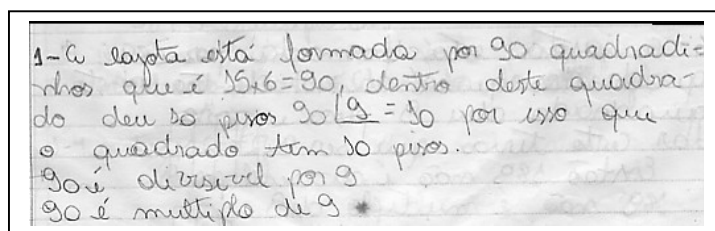 1-A lajota está formada por 90 quadradi-
nhos que é 15x6=90, dentro deste quadra-
do deu 10 pisos 90 9 = 10 por isso que
o quadrado tem 10 pisos.
90 é divisivel por 9
90 é multiplo de 9